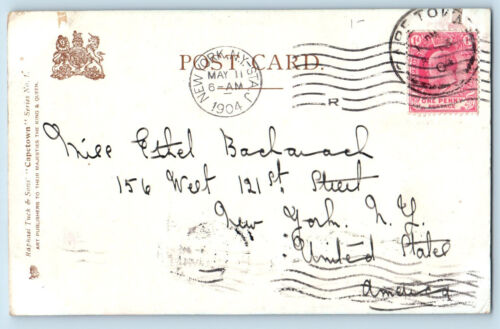 POST CARD.
NEW YORK, N.Y. STA. J
MAY 11
6-AM
1904
R
CAPE TOWN
ONE PENNY
POSTAGE
Raphael Tuck & Sons' "Capetown" Series No. 1.
ART PUBLISHERS TO THEIR MAJESTIES THE KING & QUEEN.
Miss Ethel Bacharach
156 West 121st Street
New York. N. Y.
United States
America